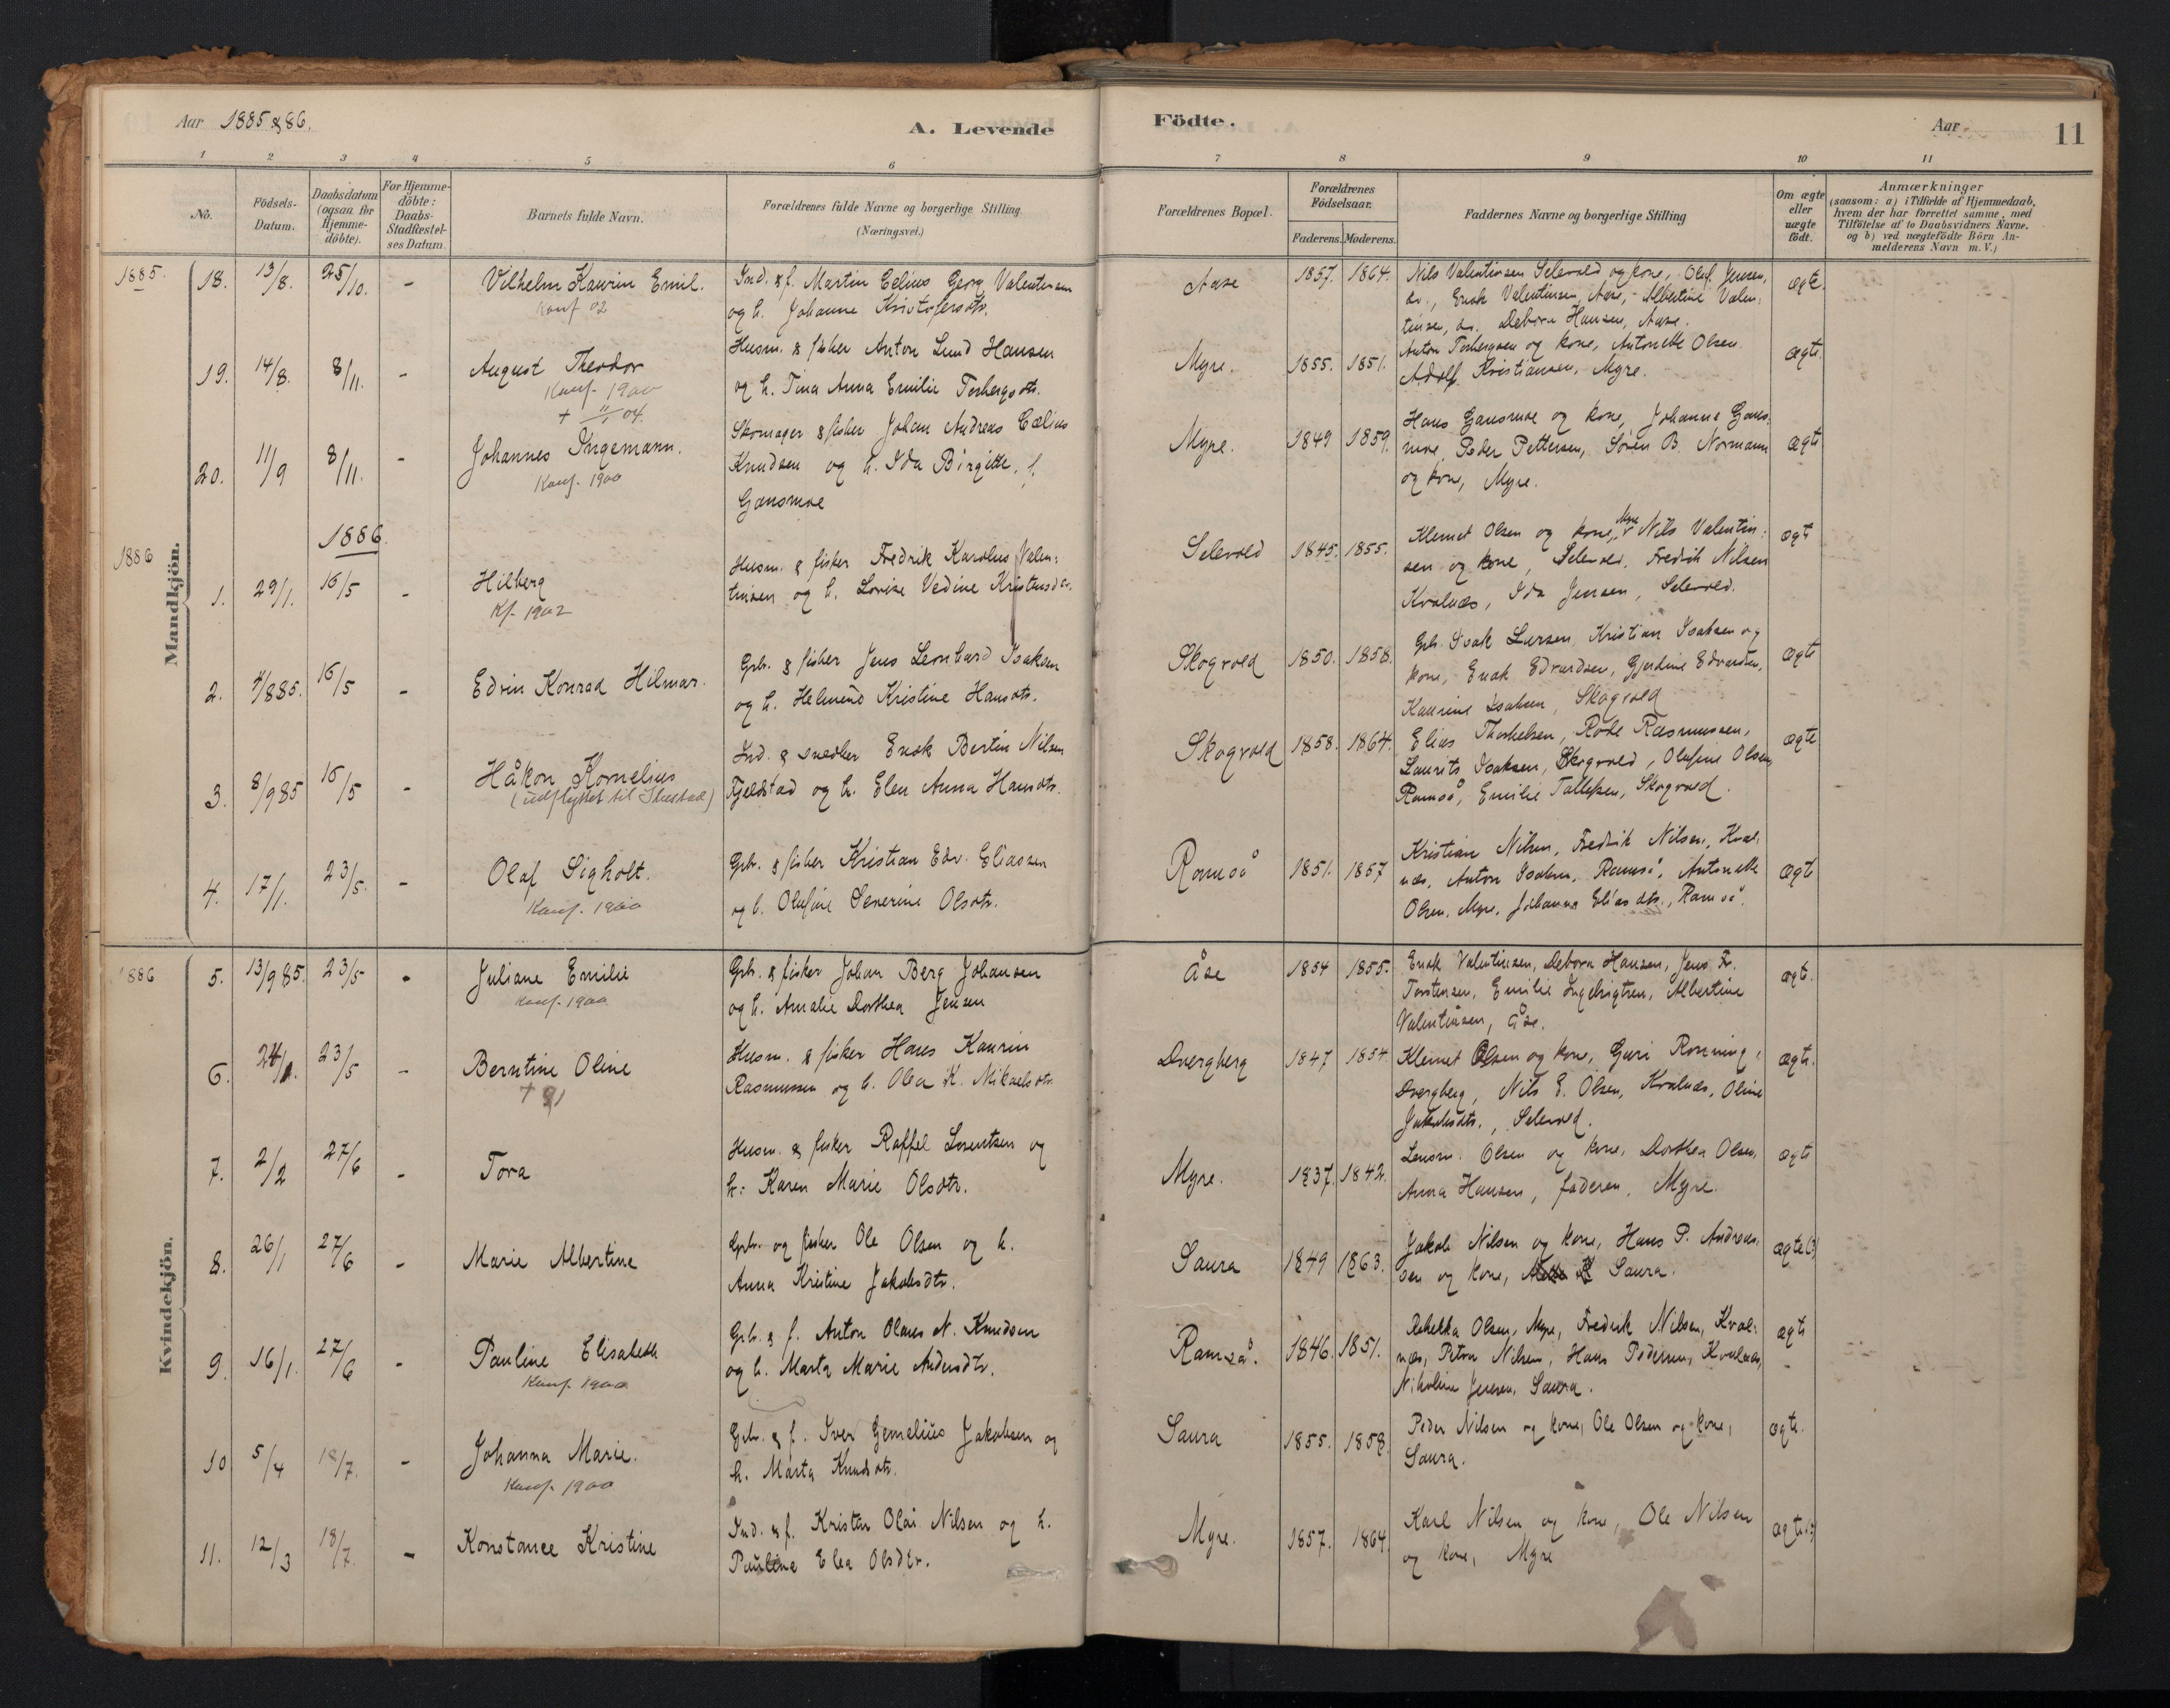 Aar 1885 & 86.
A. Levende
Födte.
Aar
11
1 2 3 4 5 6 7 8 9 10 11
No.
Födsels-Datum.
Daabsdatum (ogsaa for Hjemme-döbte).
For Hjemme-döbte: Daabs-Stadfæstel-ses Datum.
Barnets fulde Navn.
Forældrenes fulde Navne og borgerlige Stilling (Næringsvei.)
Forældrenes Bopæl.
Forældrenes Födselsaar.
Faderens. Moderens.
Faddernes Navne og borgerlige Stilling
Om ægte eller uægte födt.
Anmærkninger
(saasom: a) i Tilfælde af Hjemmedaab,
hvem der har forrettet samme, med
Tilföielse af to Daabsvidners Navne.
og b) ved uægtefödte Börn An-
melderens Navn m. V.)
Mandkjön.
1885.
18. 13/8. 25/10. - Vilhelm Kaurin Emil.
Konf 02
Ind. & f. Martin Edius Georg Valentinsen
og h. Johanne Kristofersdtr.
Aase 1857. 1864.
Nils Valentinsen Selevold og kone, Oluf Jensen,
do., Enok Valentinsen, Aase, Albertine Valen-
tinsen, do. Debora Hansen, Aase.
ægte.
19. 14/8. 8/11. - August Theodor
Konf. 1900
+ 11/1 04.
Husm. & fisker Anton Lund Hansen
og h. Tina Anna Emilie Torbergsdtr.
Myre. 1855. 1851.
Anton Torbergsen og kone, Antonette Olsen.
Adolf Kristiansen, Myre.
ægte.
20. 11/9 8/11. - Johannes Ingemann.
Konf. 1900
Skomager & fisker Johan Andreas Cælius
Knudsen og h. Ida Birgitte, f.
Gansmoe
Myre. 1849 1859.
Hans Gansmoe og kone, Johanna Gans-
moe, Peder Pettersen, Sören B. Normann
og kone, Myre.
ægte
1886
1886.
1. 29/1. 16/5 - Hilberg
Kf. 1902
Husm. & fisker Fredrik Karolus Valen-
tinsen og h. Lovise Vedine Kristensdtr.
Selevold 1845. 1855.
Klemet Olsen og kone, Myre, Nils Valentin-
sen og kone, Selevold, Fredrik Nilsen
Kvalnæs, Ida Jensen, Selevold.
ægte
2. 4/8 85. 16/5 - Edvin Konrad Hilmar.
Grb. & fisker Jens Leonhard Isaksen
og h. Helmine Kristine Hansdtr.
Skogvold 1850. 1858.
Grb. Isak Larsen, Kristian Isaksen og
kone, Enok Edvardsen, Gjerdine Edvardsen,
Kaurine Isaksen, Skogvold
ægte
3. 8/9 85 16/5 - Håkon Kornelius
(udflyttet til )
Ind. & snedker Enok Bertin Nilsen
Fjeldstad og h. Elen Anna Hansdtr.
Skogvold 1858. 1864.
Elias Thorkelsen, Rode Rasmussen,
Laurits Isaksen, Skogvold, Olufine Olsen,
Ramså, Emilie Tollefsen, Skogvold.
ægte
4. 17/1. 23/5. - Olaf Sigholt.
Konf. 1900
Grb. & fisker Kristian Edv. Eliassen
og h. Olufine Severine Olsdtr.
Romså 1851. 1857
Kristian Nilsen, Fredrik Nilsen, Kval-
næs, Anton Isaksen, Ramså, Antonette
Olsen, Myre, Johanna Eliasdtr., Ramså.
ægte
Kvindekjön.
1886
5. 13/9 85. 23/5 - Juliane Emilie
Konf. 1900
Grb. & fisker Johan Berg Johansen
og h. Amalie Dorthea Jensen
Åse 1854 1855.
Enok Valentinsen, Debora Hansen, Jens Fr.
Torstensen, Emilie Ingebrigtsen, Albertine
Valentinsen, Åse.
ægte.
6. 24/1. 23/5 - Berntine Oline
+ 91
Husm. & fisker Hans Kaurin
Rasmussen og h. Olea K. Mikaelsdtr.
Dvergberg 1847 1854
Klemet Olsen og kone, Guri Ronning,
Dvergberg, Nils E. Olsen, Kvalnæs, Oline
Jakobsdtr., Selevold.
ægte.
7. 2/2 27/6 - Tora
Husm. & fisker Raffel Lorentsen og
h: Karen Marie Olsdtr.
Myre. 1837. 1842.
Lensm. Olsen og kone, Dorthea Olsen,
Anna Hansen, faderen, Myre.
ægte
8. 26/1 27/6 - Marie Albertine
Grb. og fisker Ole Olsen og h.
Anna Kristine Jakobsdtr.
Saura 1849 1863.
Jakob Nilsen og kone, Hans P. Andreas-
sen og kone, Saura.
ægte (?)
9. 16/1. 27/6 - Pauline Elisabeth
Konf. 1900
Grb. & f. Anton Olaus N. Knudsen
og h. Marta Marie Andersdtr.
Ramså. 1846. 1851.
Rebekka Olsen, Myre, Fredrik Nilsen, Kval-
næs, Petra Nilsen, Hans Pedersen, Kvalnæs,
Nikoline Jensen, Saura.
ægte
10 5/4 18/7. - Johanna Marie.
Konf. 1900
Grb. & f. Iver Gemelius Jakobsen og
h. Marta Knudsdtr.
Saura 1855. 1858.
Peder Nilsen og kone, Ole Olsen og kone,
Saura.
ægte.
11. 12/3 18/7. - Konstance Kristine
Ind. & f. Kristen Olai Nilsen og h.
Pauline Elea Olsdtr.
Myre. 1857. 1864.
Karl Nilsen og kone, Ole Nilsen
og kone, Myre
ægte (?)